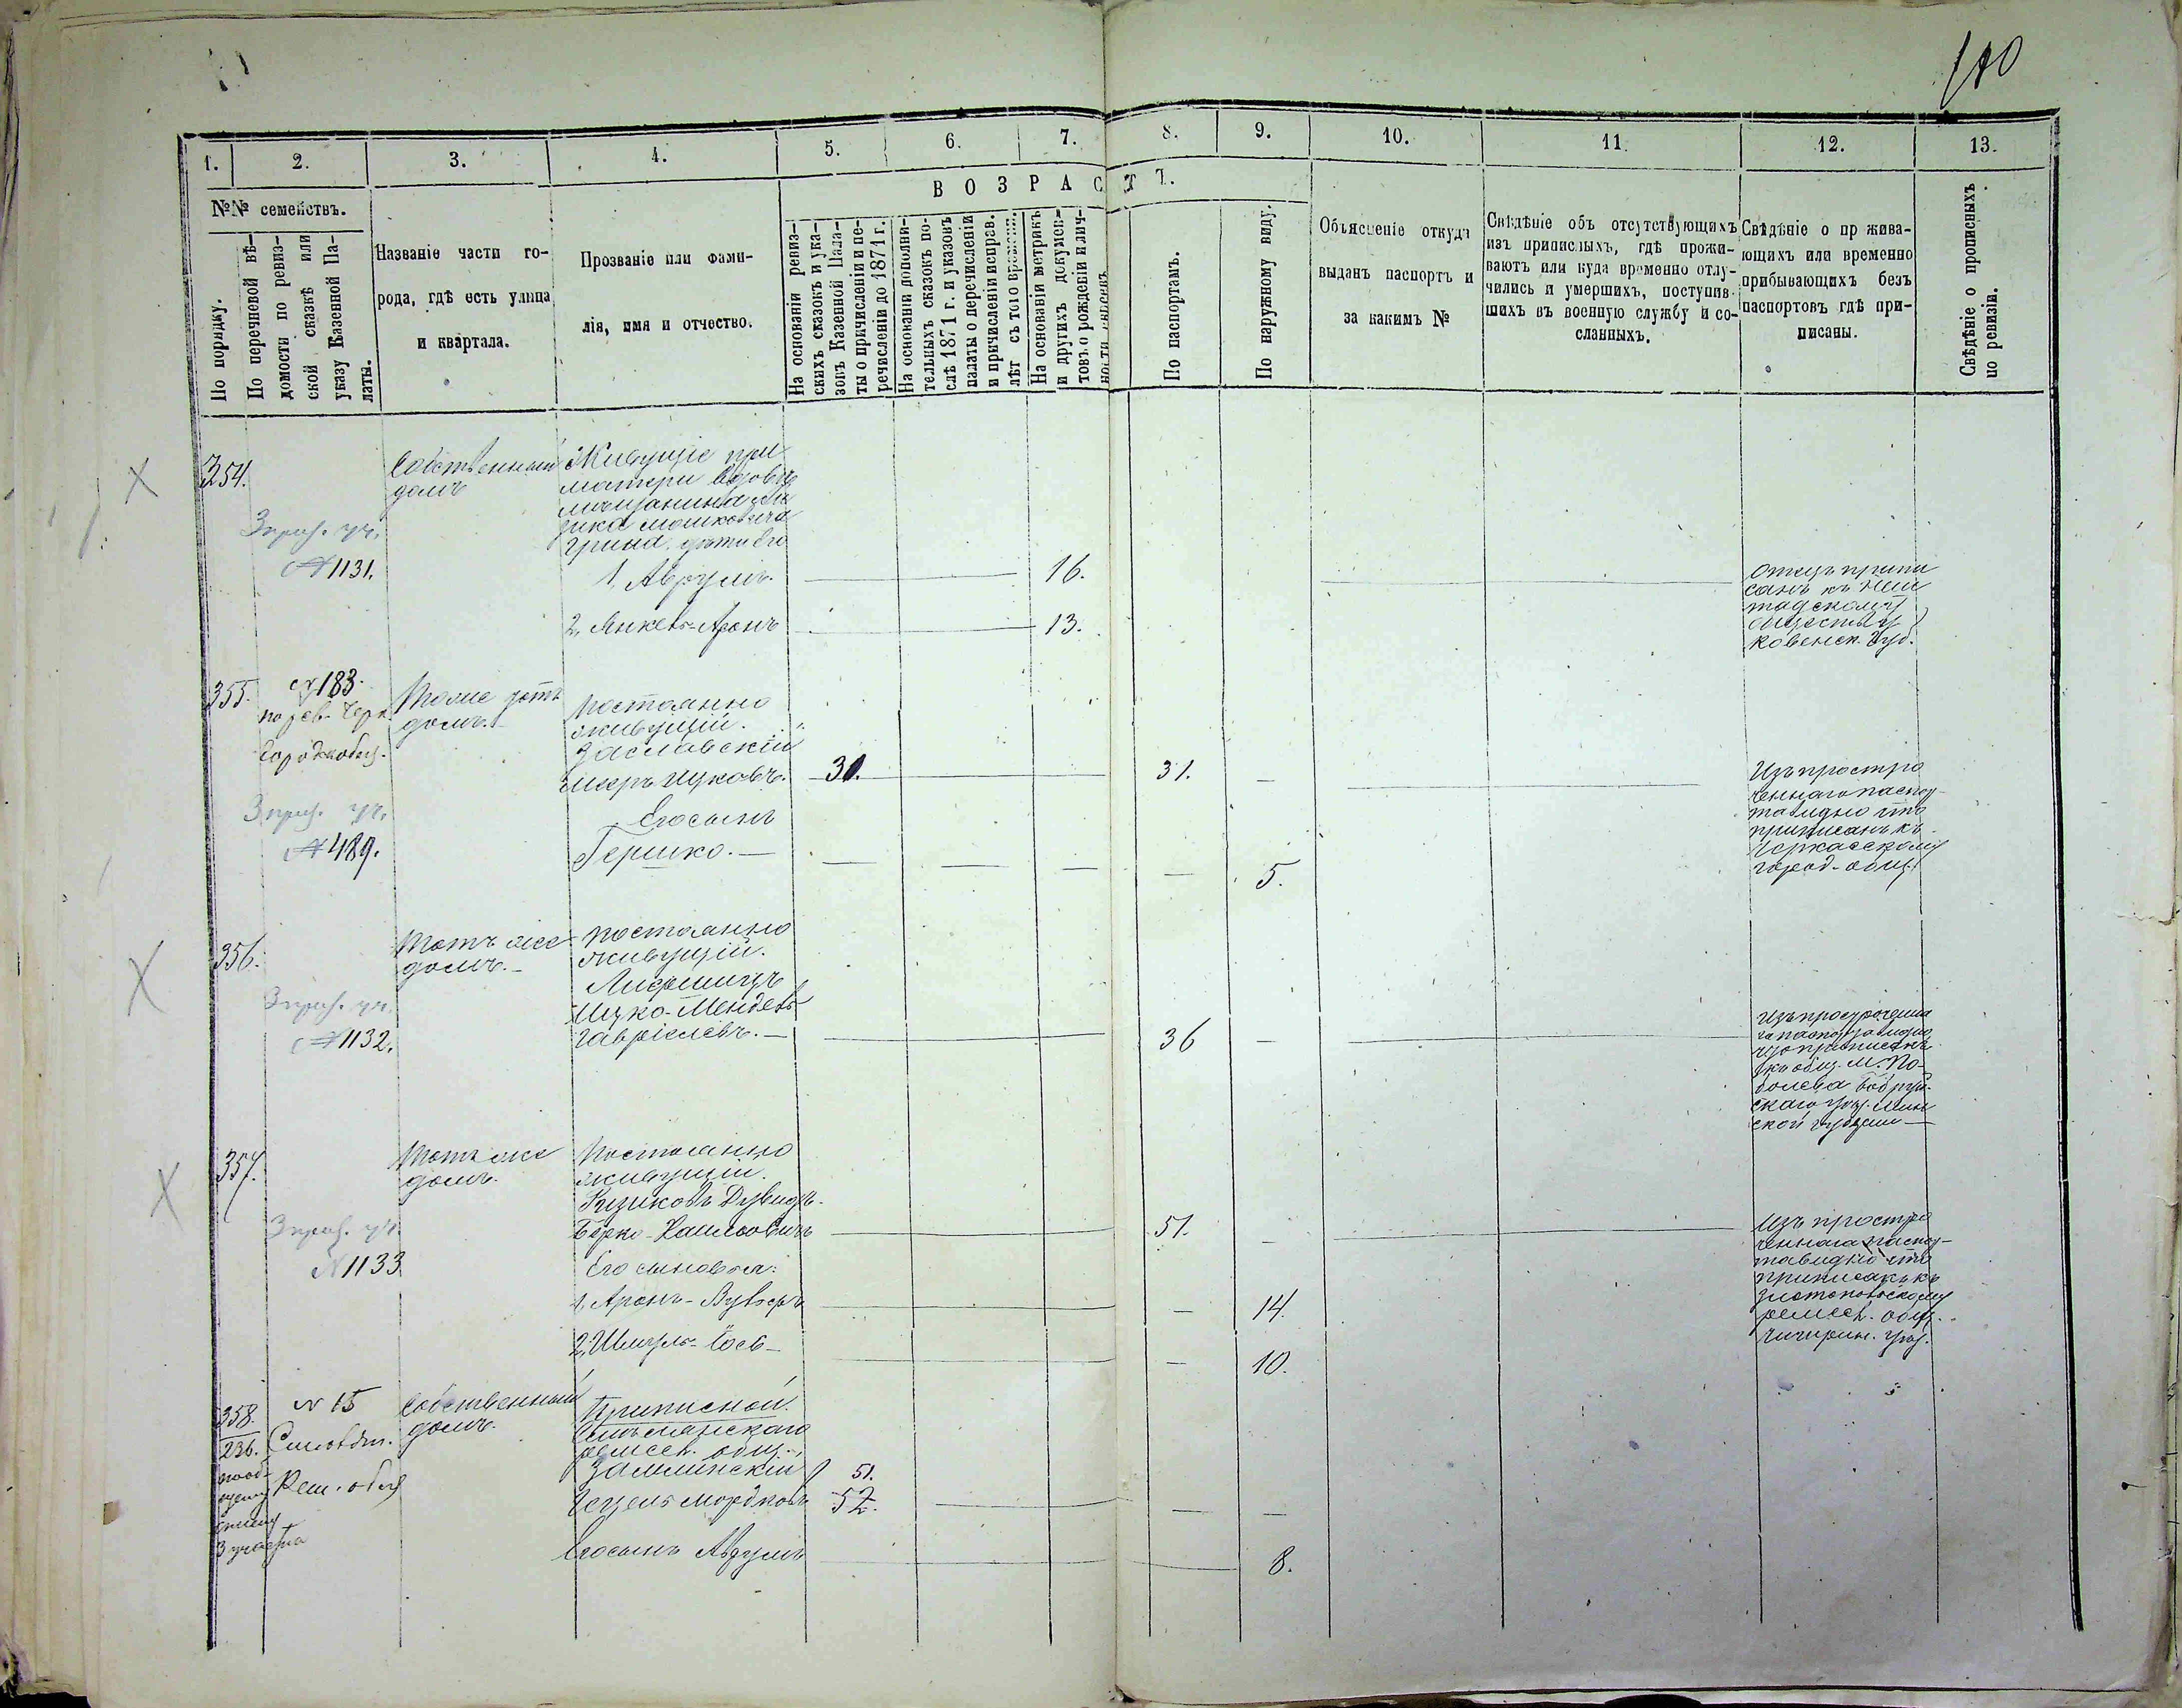 1.
2.
3.
4.
5.
6.
7.
8.
9.
10.
11.
12.
13.
№№ семействъ.
По порядку.
По перечневой вѣ-
домости по ревиз-
ской сказкѣ или
указу Казенной Па-
латы.
Названіе части го-
рода, гдѣ есть улица
и квартала.
Прозваніе или фами-
лія, имя и отчество.
ВОЗРАСТЪ.
На основаніи ревиз-
скихъ сказокъ и ука-
зовъ Казенной Пала-
ты о причисленіи и пе-
речисленіи до 1871 г.
На основаніи дополни-
тельныхъ сказокъ по-
слѣ 1871 г. и указовъ
палаты о перечисленіи
и причисленіи исправ.
лѣт съ того времени.
На основаніи метрикъ
и другихъ докумен-
товъ о рожденіи и лич-
ности
По паспортамъ.
По наружному виду.
Объясненіе откуда
выданъ паспортъ и
за какимъ №
Свѣдѣніе объ отсутствующихъ
изъ приписныхъ, гдѣ прожи-
ваютъ или куда временно отлу-
чились и умершихъ, поступив-
шихъ въ военную службу и со-
сланныхъ.
Свѣдѣніе о пр жива-
ющихъ или временно
прибывающихъ безъ
паспортовъ гдѣ при-
писаны.
Свѣдѣніе о прописныхъ
по ревизіи.
354.
3 приз. уч.
№ 1131.
Собственный
домъ
Живущіе при
матери вдовѣ
мѣщанина
мошковича
грина дѣти его
1, Аврумъ. 16.
2, Янкель-Аронъ 13.
Отецъ припи
санъ къ
обществу
Ковенск. Губ.
355.
№ 183.
по рев. Черк.
Город. общ.
3 приз. уч.
№ 489.
домъ.
Постоянно
живущій.
Заславскій
Мееръ Ицковъ. 31. 31.
Его сынъ
Гершко. 5.
Изъ простро
ченнаго паспор-
та видно что
приписанъ къ
Черкасскому
город. общ.
356.
3 приз. уч.
№ 1132.
Тотъ же
домъ.
Постоянно
живущій.
Лифшицъ
Ицко-Мендель
Гавріелевъ. 36
Изъ просрочения
го паспорта видно
что приписанъ
къ общ. м. По-
болева Бобруй-
скаго уѣз. Мин
ской губерніи
357.
3 приз. уч.
№ 1133
Тотъ же
домъ.
Постоянно
живущій.
Дувидъ-
Берко 51.
Его сыновья:
1, Аронъ- 14.
2, Шмуль- 10.
Изъ простро
ченнаго паспор-
та видно что
приписанъ къ
Златопольскому
ремесл. общ.
Чигирин. уѣз.
358.
236.
3 участка
№ 15
Рем. общ
Собственный
домъ.
Приписной.
ремесл. общ.
Замлинскій 51.
Гецель Мордковъ 52.
Его сынъ Аврумъ 8.